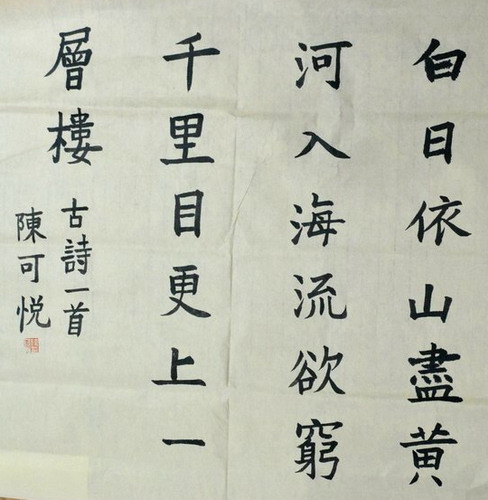 白日依山盡黄
河入海流欲窮
千里目更上一
層樓
古詩一首
陳可悦